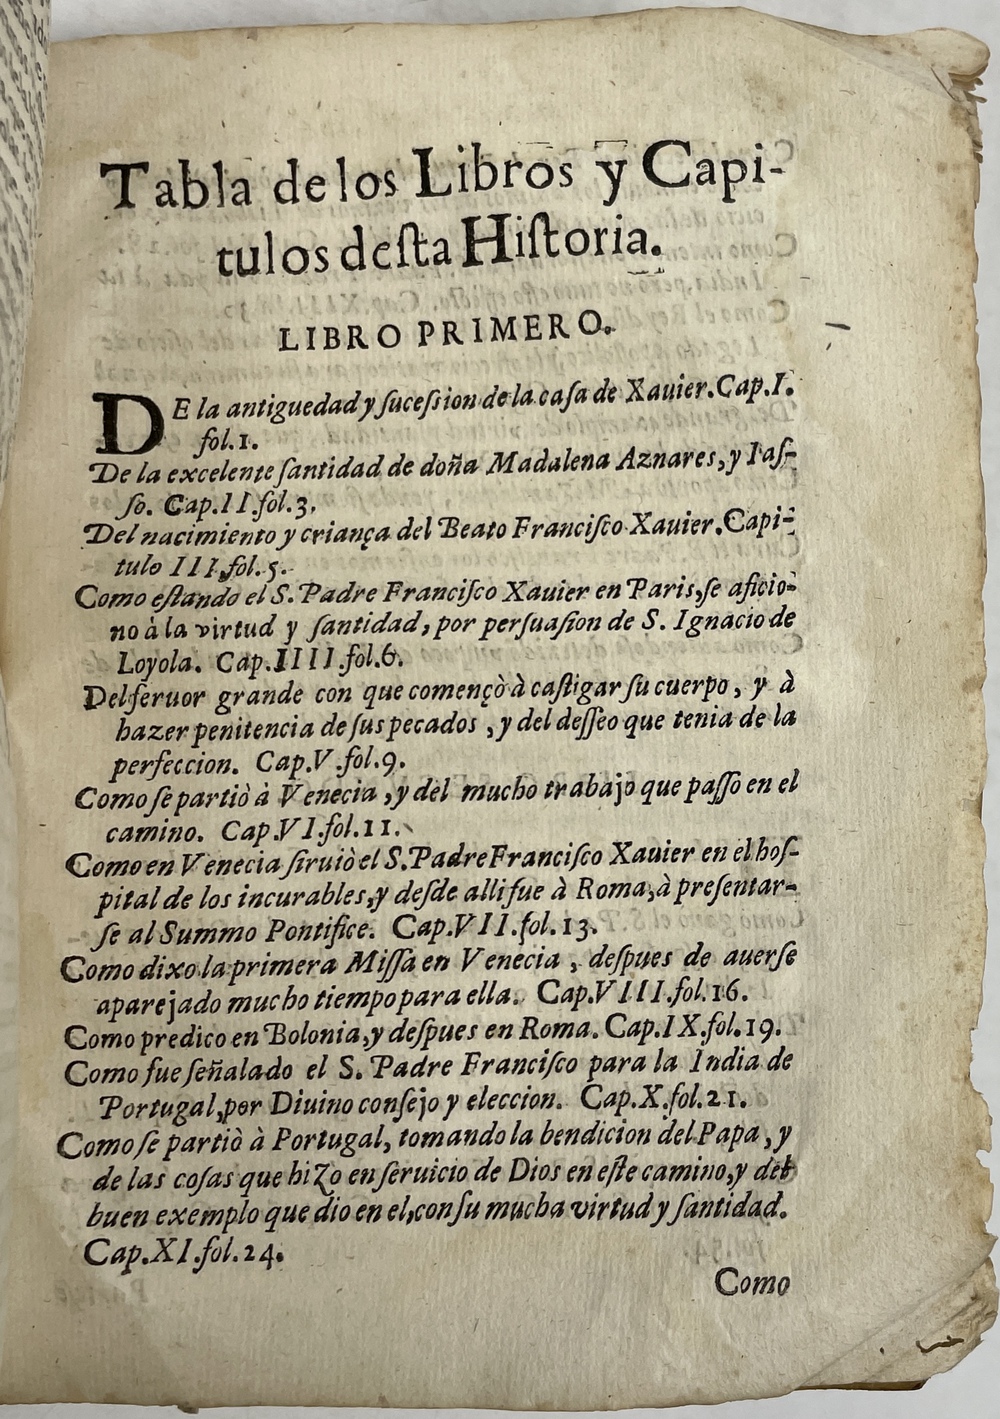 Tabla de los Libros y Capi-
tulos desta Historia.
LIBRO PRIMERO.
DE la antiguedad y sucession de la casa de Xauier. Cap. I.
fol. 1.
De la excelente santidad de doña Madalena Aznares, y Ias-
so. Cap. II. fol. 3.
Del nacimiento y criança del Beato Francisco Xauier. Capi-
tulo III. fol. 5.
Como estando el S. Padre Francisco Xauier en Paris, se aficio-
no à la virtud y santidad, por persuasion de S. Ignacio de
Loyola. Cap. IIII. fol. 6.
Del feruor grande con que començò à castigar su cuerpo, y à
hazer penitencia de sus pecados, y del desseo que tenia de la
perfeccion. Cap. V. fol. 9.
Como se partiò à Venecia, y del mucho trabajo que passo en el
camino. Cap. VI. fol. 11.
Como en Venecia siruiò el S. Padre Francisco Xauier en el hos-
pital de los incurables, y desde alli fue à Roma, à presentar-
se al Summo Pontifice. Cap. VII. fol. 13.
Como dixo la primera Missa en Venecia, despues de auerse
aparejado mucho tiempo para ella. Cap. VIII. fol. 16.
Como predico en Bolonia, y despues en Roma. Cap. IX. fol. 19.
Como fue señalado el S. Padre Francisco para la India de
Portugal, por Diuino consejo y eleccion. Cap. X. fol. 21.
Como se partiò à Portugal, tomando la bendicion del Papa, y
de las cosas que hizo en seruicio de Dios en este camino, y del
buen exemplo que dio en el, con su mucha virtud y santidad.
Cap. XI. fol. 24.
Como